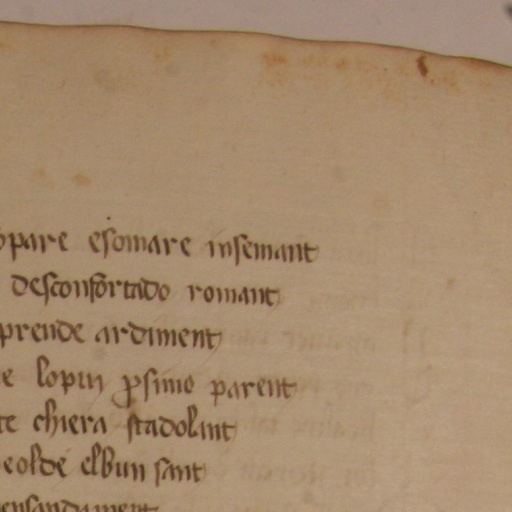 pare esomare insemant
desconfortado romant
prende ardiment
e lopui ꝓsimo parent
te chiera stadolant
eolde elbun sant